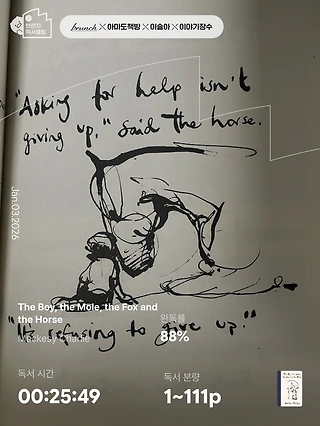 독서클럽
brunch × 아마도책방 × 이슬아 × 이야기장수
"Asking for help isn't
giving up," said the horse.
Jan.03.2026
The Boy, the Mole, the Fox and
the Horse
Mackesy Charlie
완독률
88%
"It's refusing to give up."
독서 시간
00:25:49
독서 분량
1~111p